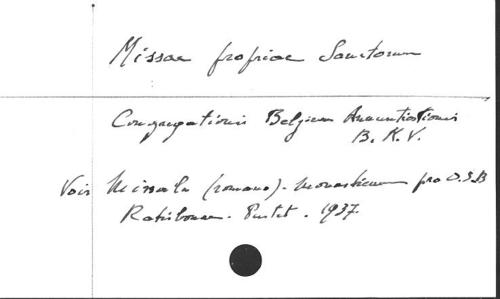 Missae propriae Sanctorum
Congregationis Belgicae Annuntiationis
B. K. V.
Voir Missale (romano)-monasticum pro O.S.B
Ratisbonae. Pustet. 1937.